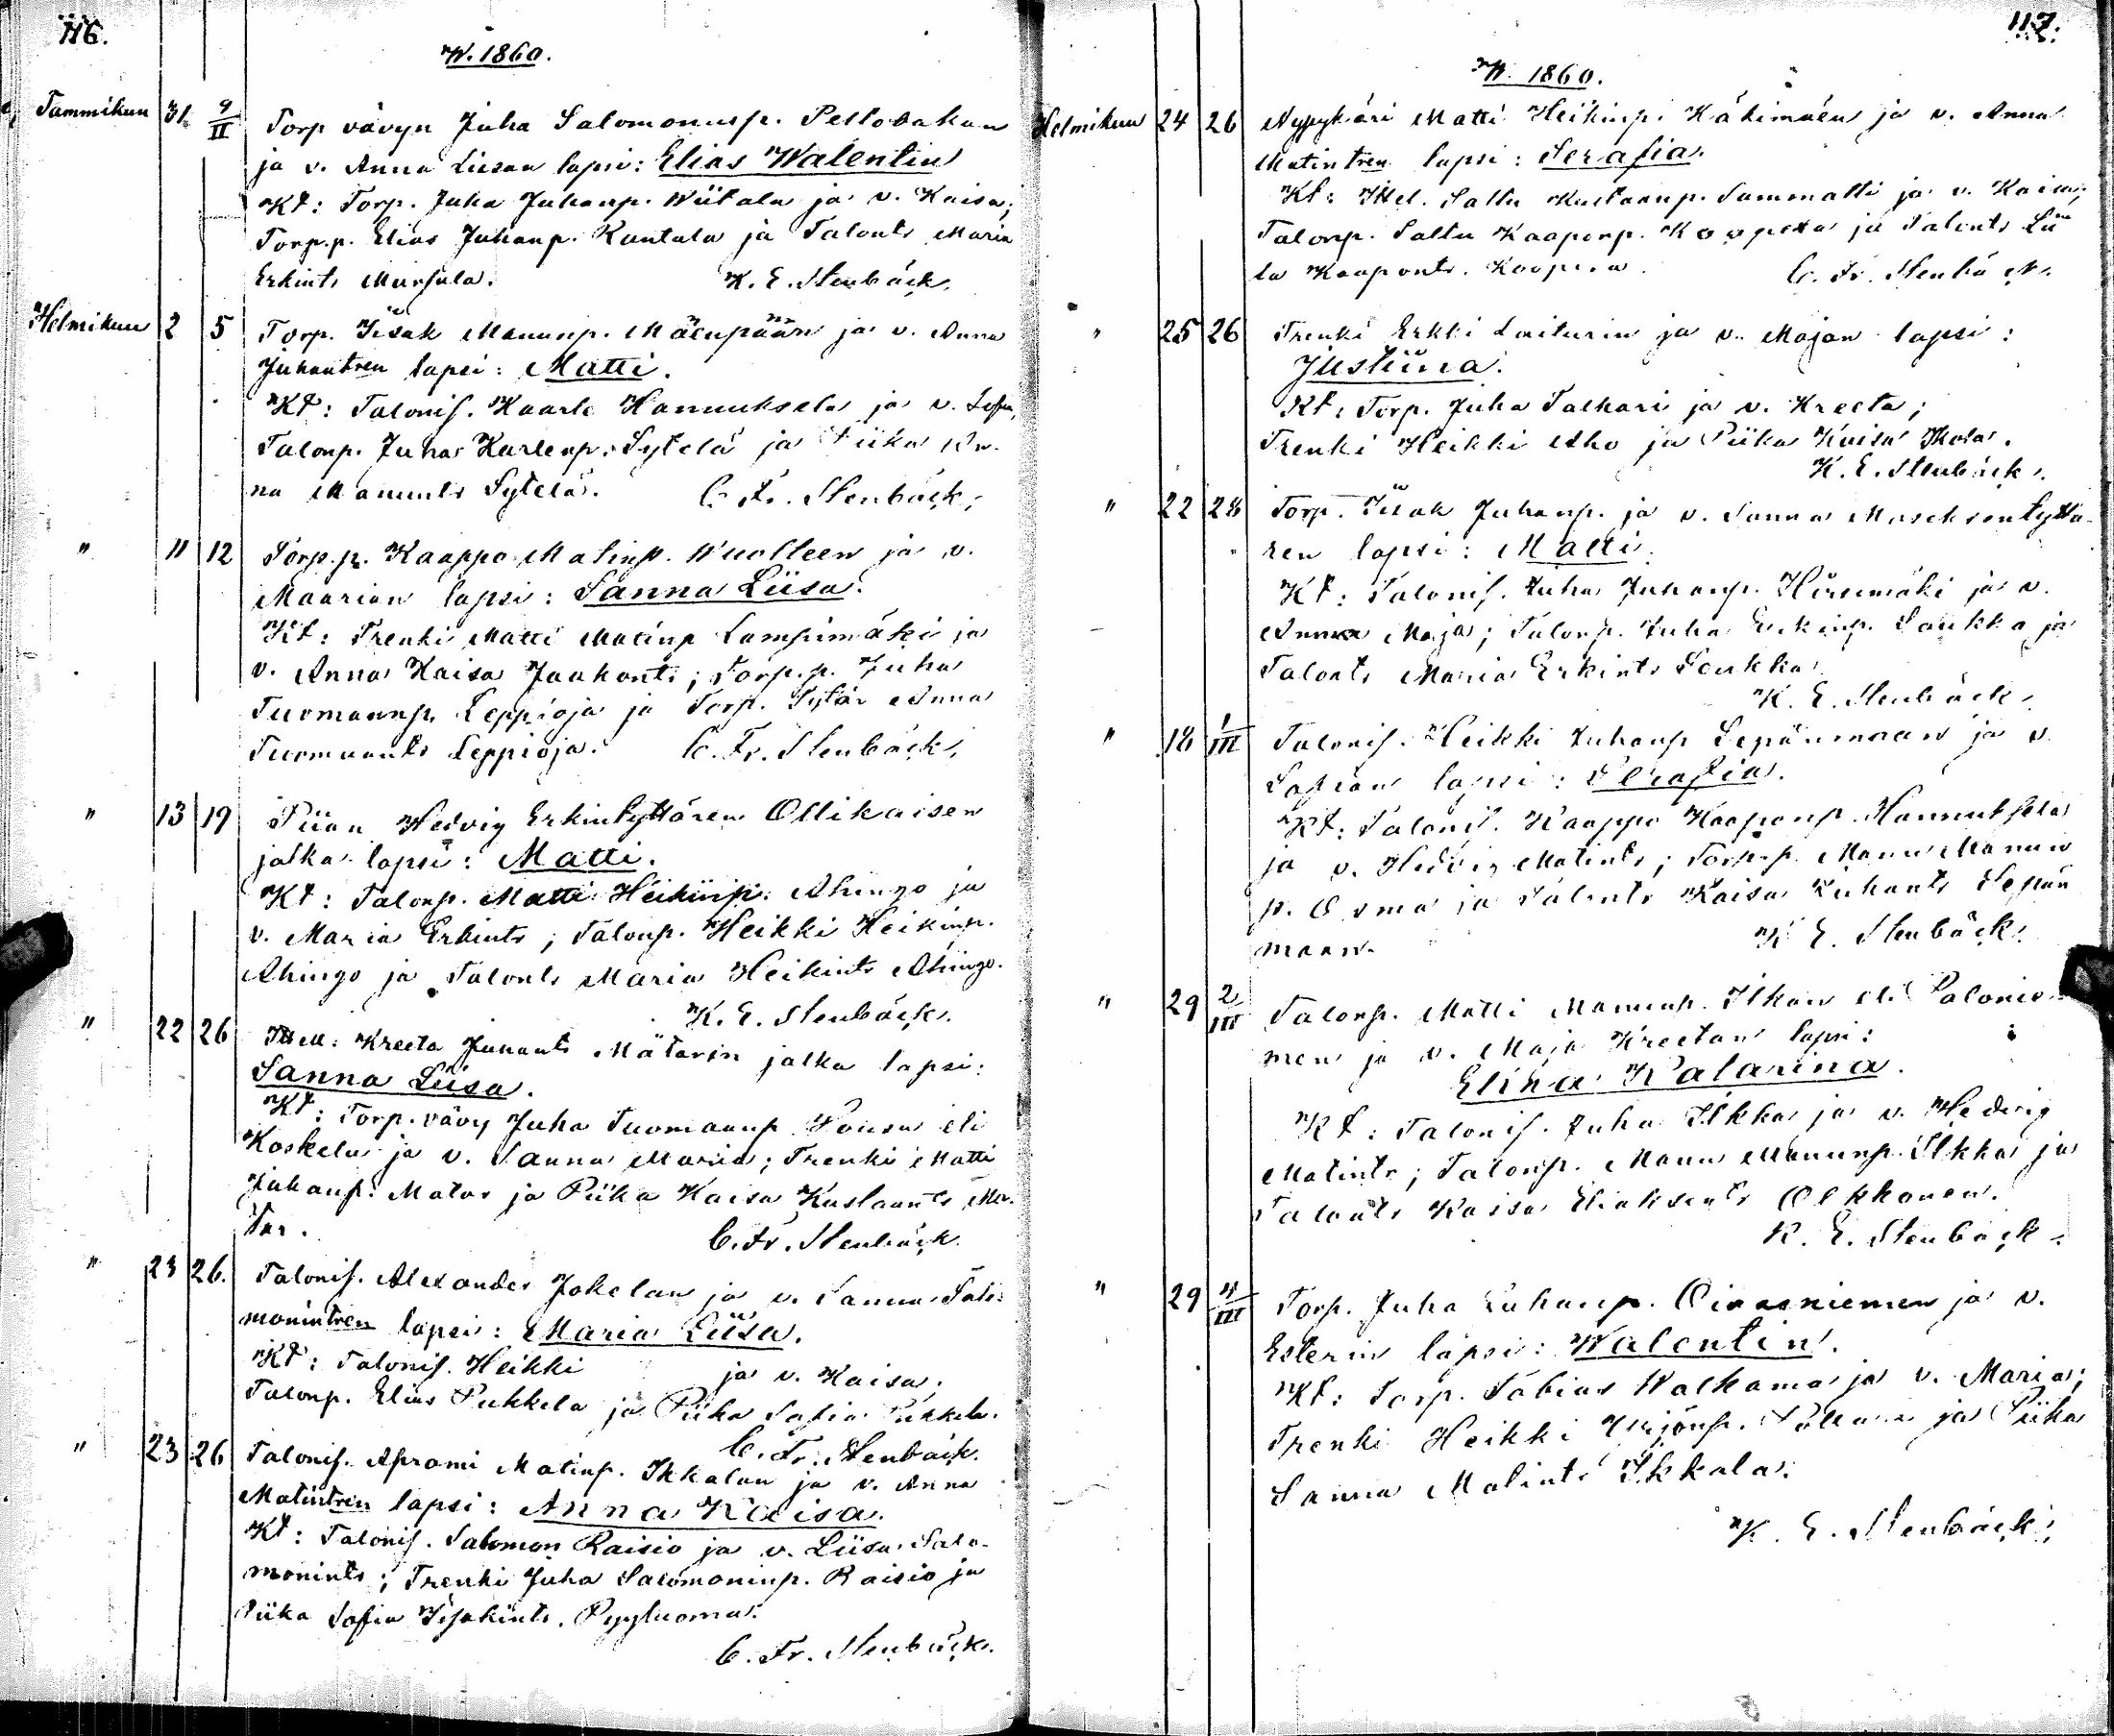 116.
W. 1860.
Tammikuu 31 9/II Torp vävyn Juha Salomoninp. Peltovakan
ja v. Anna Liisan lapsi: Elias Walentin
Kt: Torp. Juha Juhanp. Wiitala ja v. Kaisa;
Torp.p. Elias Juhanp. Rantala ja Talonts Maria
Erkints Mursula. K. E. Stenbäck.
Helmikuu 2 5 Torp. Iisak Manunp. Mäenpään ja v. Anna
Juhantren lapsi: Matti.
Kt: Talonis. Kaarle Hannuksela ja v. Sofia,
Talonp. Juha Karlenp. Sytelä ja Piika An-
na Manunts Sytelä. C. Fr. Stenbäck,
" 11 12 Torp.p. Kaappo Matinp. Wuolleen ja v.
Maarian lapsi: Sanna Liisa.
Kt: Trenki Matti Matinp Lampimäki ja
v. Anna Kaisa Jaakonts; Torp.p. Juha
Tuomaanp. Leppioja ja Torp. Tytär Anna
Tuomaants Leppioja. C. Fr. Stenbäck,
" 13 19 Piian Hedvig Erkintyttären Ollikaisen
jalka lapsi: Matti.
Kt: Talonp. Matti Heikinp. Ahingo ja
v. Maria Erkints; Talonp. Heikki Heikinp.
Ahingo ja Talonts Maria Heikints Ahingo.
K. E. Stenbäck.
" 22 26 Itsell: Kreeta Juhants Mätärin jalka lapsi:
Sanna Liisa.
Kt: Torp. vävy Juha Tuomaanp. Pousu eli
Koskela ja v. Sanna Maria; Trenki Matti
Juhanp. Matar ja Piika Kaisa Kustaants Ma-
tar. C. Fr. Stenbäck.
" 23 26. Talonis. Alexander Jokelan ja v. Sanna Salo-
monintren lapsi: Maria Liisa.
Kt: Talonis. Heikki ja v. Kaisa;
Talonp. Elias Pukkela ja Piika Sofia Pukkela.
C. Fr. Stenbäck.
" 23 26 Talonis. Aprami Matinp. Ikkalan ja v. Anna
Matintren lapsi: Anna Kaisa.
Kt: Talonis. Salomon Raisio ja v. Liisa Salo-
monints; Trenki Juha Salomoninp. Raisio ja
Piika Sofia Iisakints. Pyyluoma.
C. Fr. Stenbäck.
117.
W. 1860.
Helmikuu 24 26 Nyypykäri Matti Heikinp. Kähimäen ja v. Anna
Matintren lapsi: Serafia.
Kt: Itsel. Saltu Kustaanp. Sammatti ja v. Kaisa;
Talonp. Saltu Kaaponp. ja Talonts Lii
sa Kaaponts. C. Fr. Stenbäck.
" 25 26 Trenki Erkki Laiturin ja v. Majan lapsi:
Justiina.
Kt: Torp. Juha Talkari ja v. Kreeta;
Trenki Heikki Aho ja Piika Kaisa
K. E. Stenbäck.
" 22 28 Torp. Iisak Juhanp. ja v. Sanna tyttä-
ren lapsi: Matti.
Kt: Talonis. Juha Juhanp. Hirsimäki ja v.
Anna Maja; Talonp. Juha Erkinp. Laukka ja
Talonts Maria Erkints Laukka.
K. E. Stenbäck.
" 18 1/III Talonis. Heikki Juhanp Sepänmaan ja v.
Sofian lapsi: Serafia.
Kt: Talonis. Kaappo Kaaponp. Hannuksela
ja v. Hedvig Matints; Torp.p. Manu Manun
p. Osma ja Talonts Kaisa Juhants Sepän
maan. K. E. Stenbäck.
" 29 2/III Talonp. Matti Manunp. Ilkan eli Palonie-
men ja v. Maja Kreetan lapsi:
Elina Katarina.
Kt: Talonis. Juha Ilkka ja v. Hedvig
Matints; Talonp. Manu Manunp. Ilkka ja
Talonts Kaisa Eliaksents Olkkonen.
K. E. Stenbäck.
" 29 4/III Torp. Juha Juhanp. Oivasniemen ja v.
Esterin lapsi: Walentin.
Kt: Torp. Tobias Walkama ja v. Maria;
Trenki Heikki Yrjönp. ja Piika
Sanna Matints Ikkala.
K. E. Stenbäck,